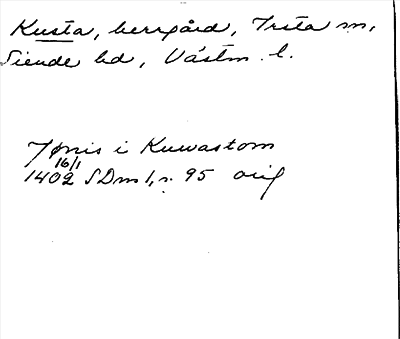 Kusta, herrgård, Irsta sn,
Siende hd, Västm. l.
Jønis i Kuwastom
16/1
1402 SDm 1, n. 95 orig